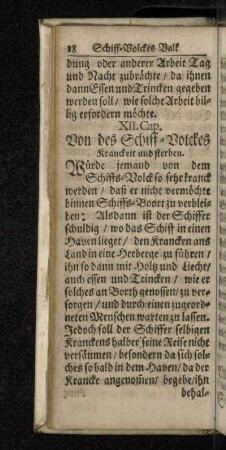 18 Schiff-Volckes Balk
dung oder anderer Arbeit Tag
und Nacht zubråchte / da ihnen
dann Essen und Trincken gegeben
werden soll / wie solche Arbeit bil-
lig erfordern möchte.
XII. Cap.
Von des Schiff-Volckes
Kranckeit und sterben.
Würde jemand von dem
Schiffs-Volck so sehr kranck
werden / daß er nicht vermöchte
binnen Schiffs-Boort zu verblei-
ben: Alsdann ist der Schiffer
schuldig / wo das Schiff in einen
Haven lieget / den Krancken ans
Land in eine Herberge zu führen /
ihn so dann mit Holtz und Liecht /
auch essen und Trincken / wie er
solches an Borth genossen / zu ver-
sorgen / und durch einen zugeord-
neten Menschen warten zu lassen.
Jedoch soll der Schiffer selbigen
Kranckens halber seine Reise nicht
versäumen / besondern da sich sol-
ches so bald in dem Haven / da der
Krancke angenom̃en / begebe / ihn
behal-